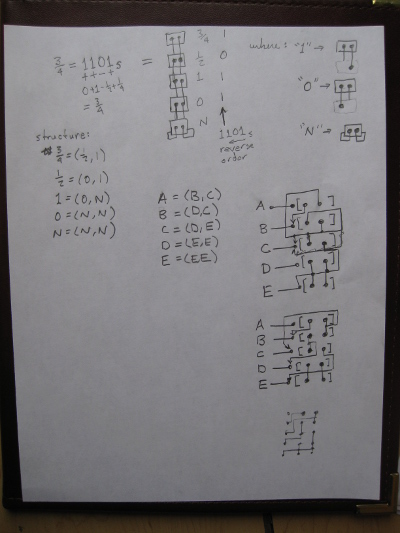 3/4 = 1101s =
++-+
0+1-1/2+1/4
= 3/4
3/4 1
1/2 0
1 1
0 1
N
1101s
←
reverse
order
where: "1" →
"0" →
"N" →
structure:
3/4 = (1/2, 1)
1/2 = (0, 1)
1 = (0, N)
0 = (N, N)
N = (N, N)
A = (B, C)
B = (D, C)
C = (D, E)
D = (E, E)
E = (E E)
A [ ]
B [ ]
C [ ]
D [ ]
E [ ]
A [ ]
B [ ]
C [ ]
D [ ]
E [ ]